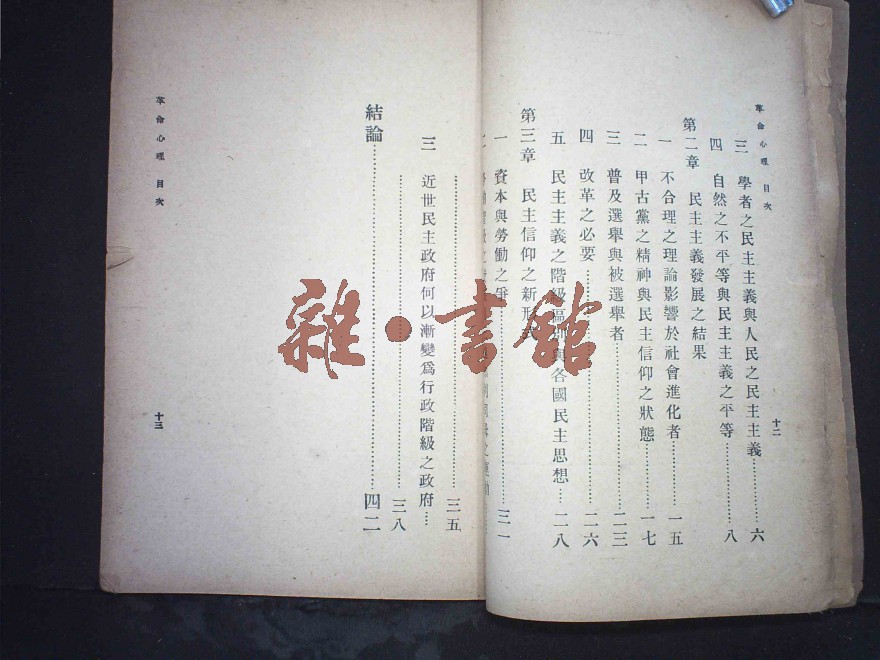 革命心理 目次
三 學者之民主主義與人民之民主主義……六
四 自然之不平等與民主主義之平等……八
第二章 民主主義發展之結果
一 不合理之理論影響於社會進化者……一五
二 甲古黨之精神與民主信仰之狀態……一七
三 普及選舉與被選舉者……二三
四 改革之必要……二六
五 民主主義之階級區別與各國民主思想……二八
第三章 民主信仰之新形式
一 資本與勞働之爭……三一
二
十二
……三五
三 近世民主政府何以漸變爲行政階級之政府……
……三八
結論……四二
革命心理 目次
十三
雜·書館